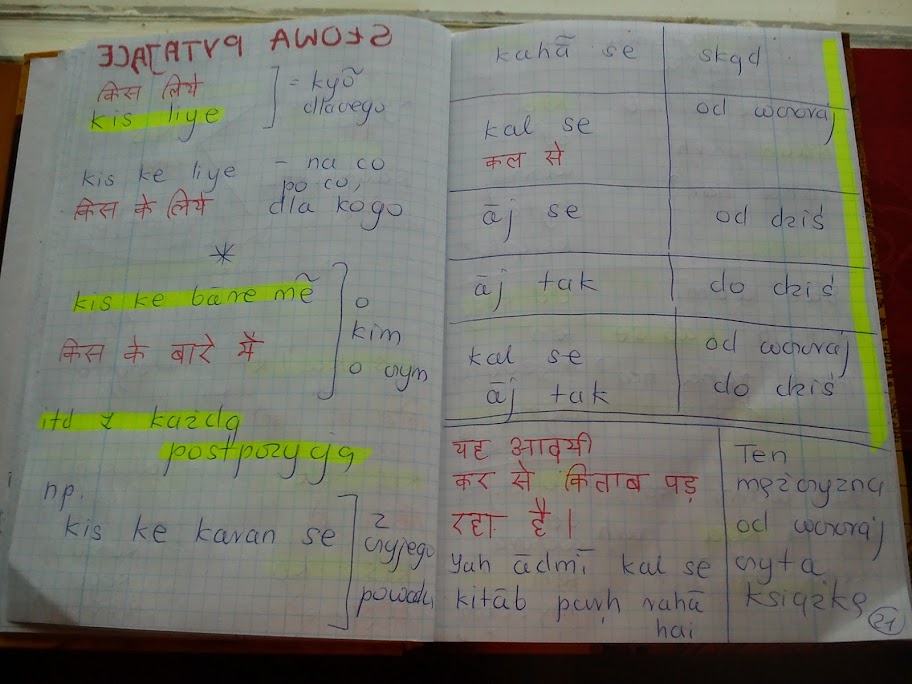 SŁOWA PYTAJĄCE
किस लिये
kis liye
= kyõ
dlaczego
kis ke liye – na co
po co,
किस के लिये dla kogo
kis ke bāre mẽ
किस के बारे में
o
kim
o czym
itd z każdą
postpozycją
np.
kis ke karan se
z
czyjego
powodu
kahā̃ se skąd
kal se od wczoraj
कल से
āj se od dziś
āj tak do dziś
kal se od wczoraj
āj tak do dziś
यह आदमी
कर से किताब पड़
रहा है।
Yah ādmī kal se
kitāb paṛh rahā
hai
Ten
mężczyzna
od wczoraj
czyta
książkę
21